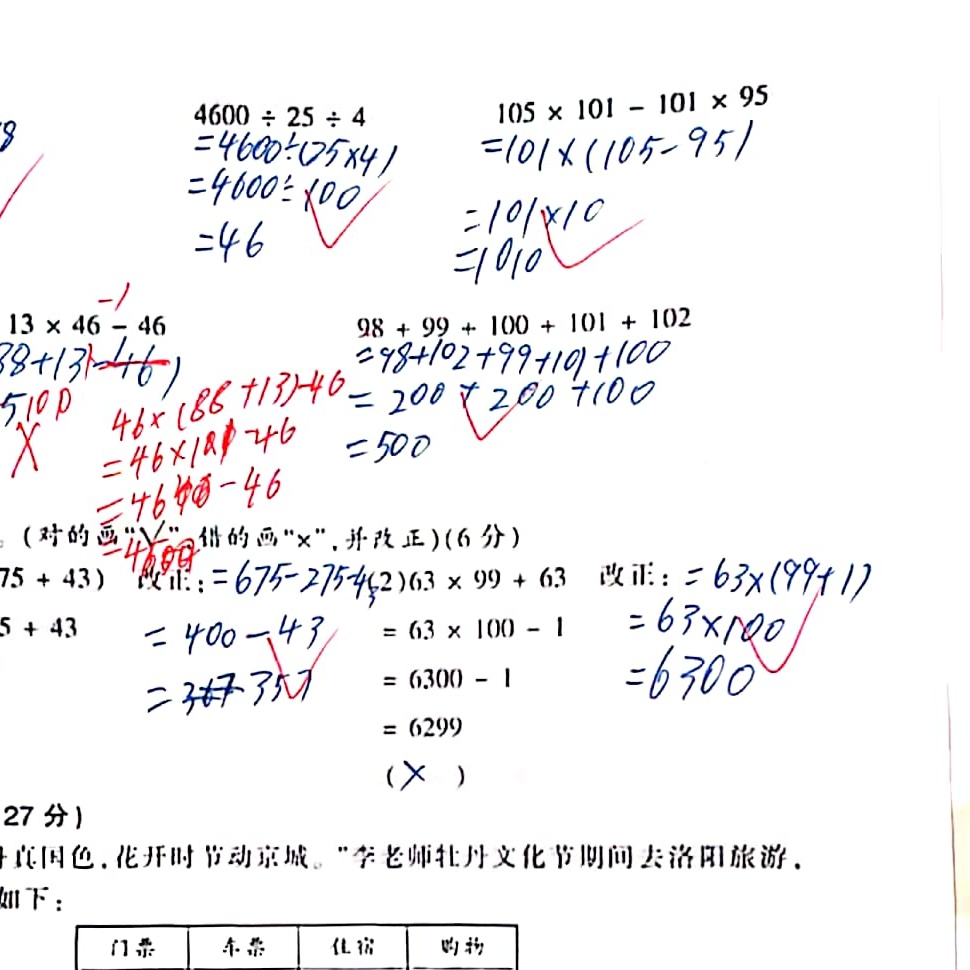 8
4600 ÷ 25 ÷ 4
=4600÷(25×4)
=4600÷100
=46
105 × 101 − 101 × 95
=101×(105-95)
=101×10
=1010
-1
13 × 46 − 46
88+13-46)
5100
46×(88+13)-46
=46×101-46
=4646-46
=4600
98 + 99 + 100 + 101 + 102
=98+102+99+101+100
= 200 + 200 +100
=500
。(对的画"√",错的画"×",并改正)(6 分)
75 + 43)
5 + 43
改正:=675-275-43
= 400-43
= 357
(2)63 × 99 + 63
= 63 × 100 − 1
= 6300 − 1
= 6299
(× )
改正:=63×(99+1)
=63×100
=6300
27 分)
丹真国色,花开时节动京城。"李老师牡丹文化节期间去洛阳旅游,
如下:
门票 车票 住宿 购物